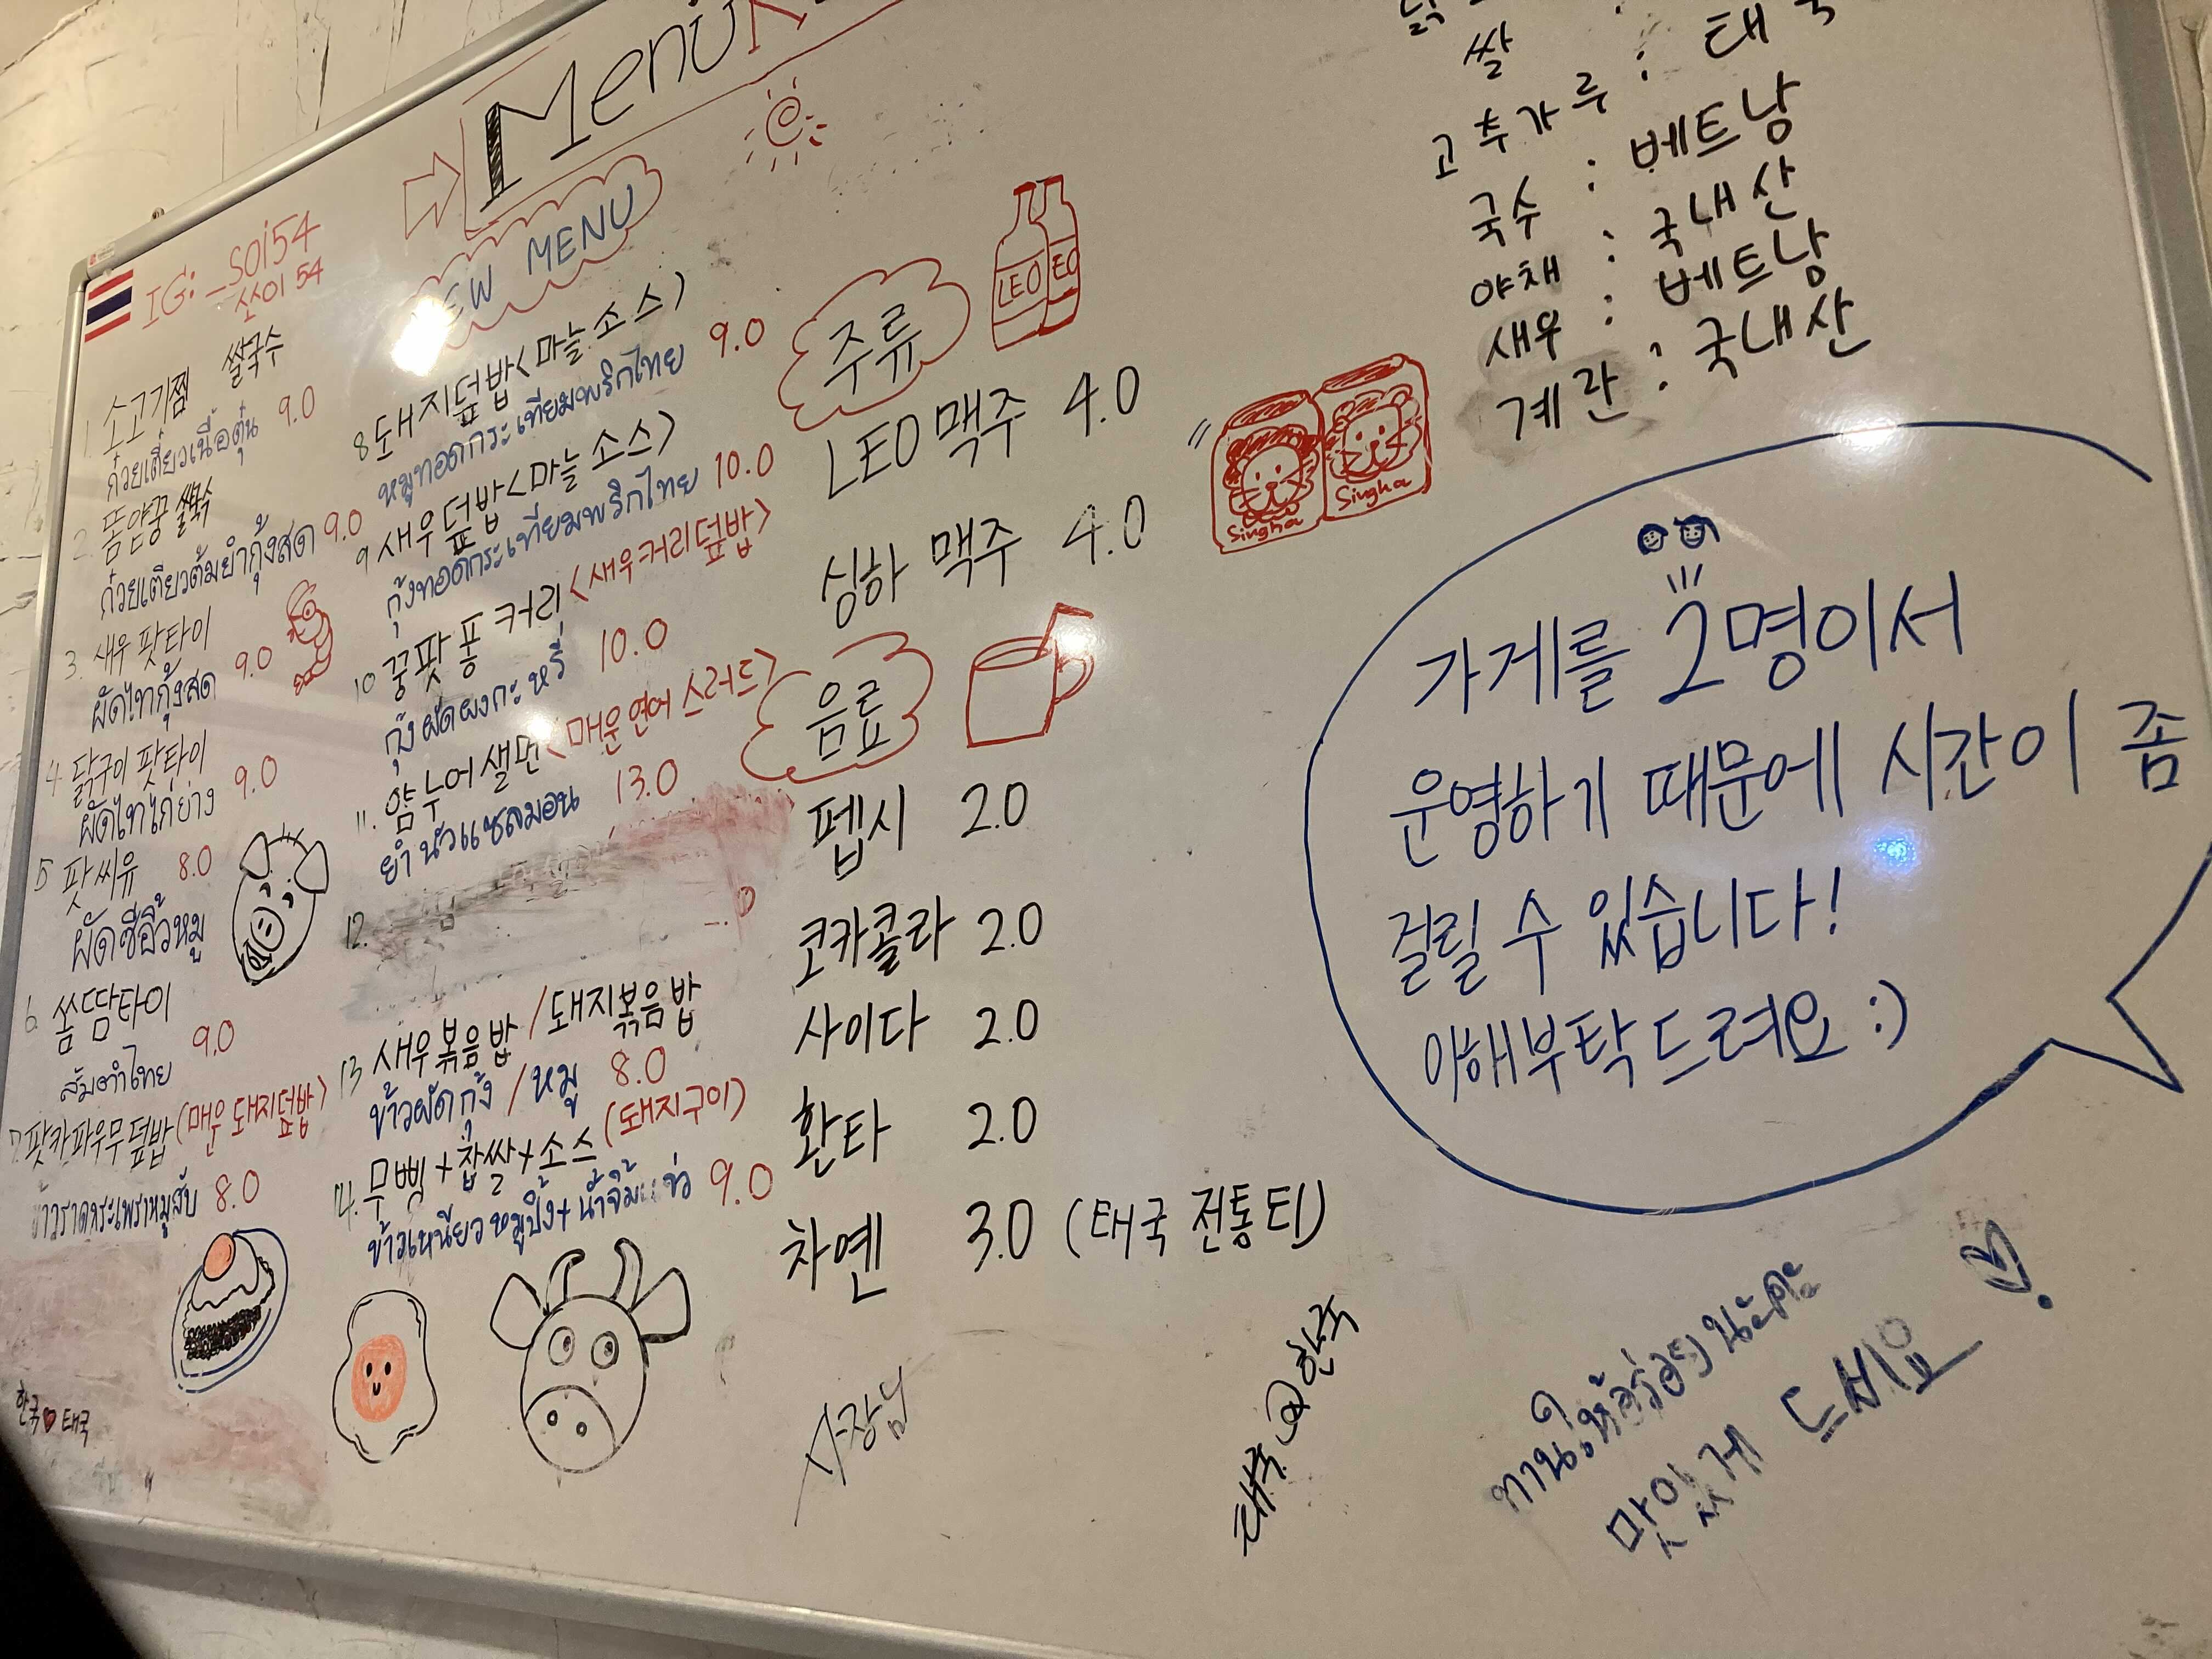 Menu
NEW MENU
IG: _soi54
쏘이 54
1. 소고기찜 쌀국수
ก๋วยเตี๋ยวเนื้อตุ๋น 9.0
2. 똠얌꿍 쌀국수
ก๋วยเตียวต้มยำกุ้งสด 9.0
3. 새우 팟타이
ผัดไทกุ้งสด 9.0
4. 닭구이 팟타이
ผัดไทไก่ย่าง 9.0
5 팟씨유 8.0
ผัดซีอิ้วหมู
6. 쏨땀타이
ส้มตำไทย 9.0
7. 팟카파우무덮밥 (매운 돼지덮밥)
ข้าวราดกระเพราหมูสับ 8.0
한국 ♥ 태국
8 돼지덮밥<마늘소스>
หมูทอดกระเทียมพริกไทย 9.0
9 새우덮밥<마늘소스>
กุ้งทอดกระเทียมพริกไทย 10.0
10 꿍팟퐁커리 <새우커리덮밥>
กุ้งผัดผงกะหรี่ 10.0
11. 얌누어샐먼 <매운연어 스러드>
ยำนัวแซลมอน 13.0
12.
13 새우볶음밥 / 돼지볶음밥
ข้าวผัดกุ้ง / หมู 8.0
14. 무삥+찹쌀+소스 (돼지구이)
ข้าวเหนียวหมูปิ้ง+น้ำจิ้มแจ่ว 9.0
주류
LEO
LEO 맥주 4.0
싱하 맥주 4.0
Singha
Singha
음료
펩시 2.0
코카콜라 2.0
사이다 2.0
환타 2.0
차옌 3.0 (태국 전통티)
사장님
태국 한국
쌀
고추가루 : 태국
국수 : 베트남
야채 : 국내산
새우 : 베트남
계란 : 국내산
가게를 2명이서
운영하기 때문에 시간이 좀
걸릴 수 있습니다!
이해부탁드려요 :)
ทานให้อร่อยนะคะ
맛있게 드세요